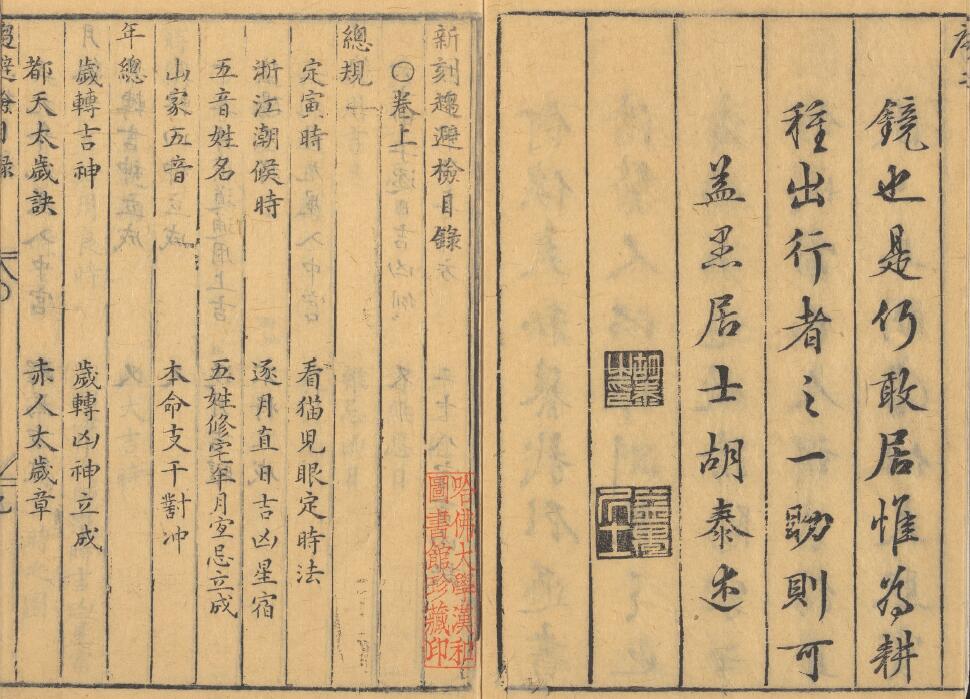 鏡也是仍敢居惟為耕
種出行者之一助則可
益思居士胡泰述
新刻趨避檢目錄
〇卷上
總規
定寅時 看猫兒眼定時法
浙江潮候時 逐月直日吉凶星宿
五音姓名 五姓修宅年月宜忌立成
山家五音 本命支干對冲
年總
月歲轉吉神 歲轉凶神立成
都天太歲訣 赤人太歲章
哈佛大學漢和
圖書館珍藏印